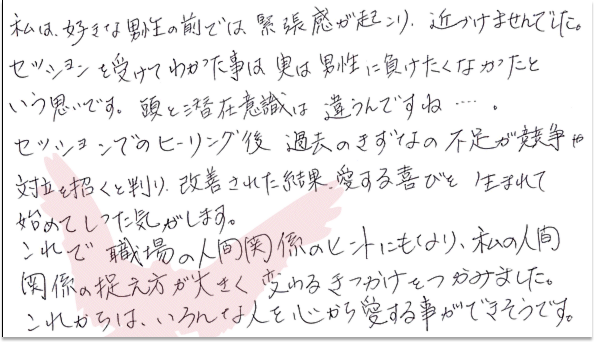 私は、好きな男性の前では 緊張感が起こり、近づけませんでした。
セッションを受けてわかった事は 実は男性に負けたくなかったと
いう思いです。頭と潜在意識は 違うんですね…。
セッションでのヒーリング後 過去のきずなの不足が競争や
対立を招くと判り、改善された結果、愛する喜びを 生まれて
始めてしった気がします。
これで 職場の人間関係のヒントにもなり、私の人間
関係の捉え方が大きく 変わるきっかけをつかみました。
これからは、いろんな人を心から愛する事ができそうです。